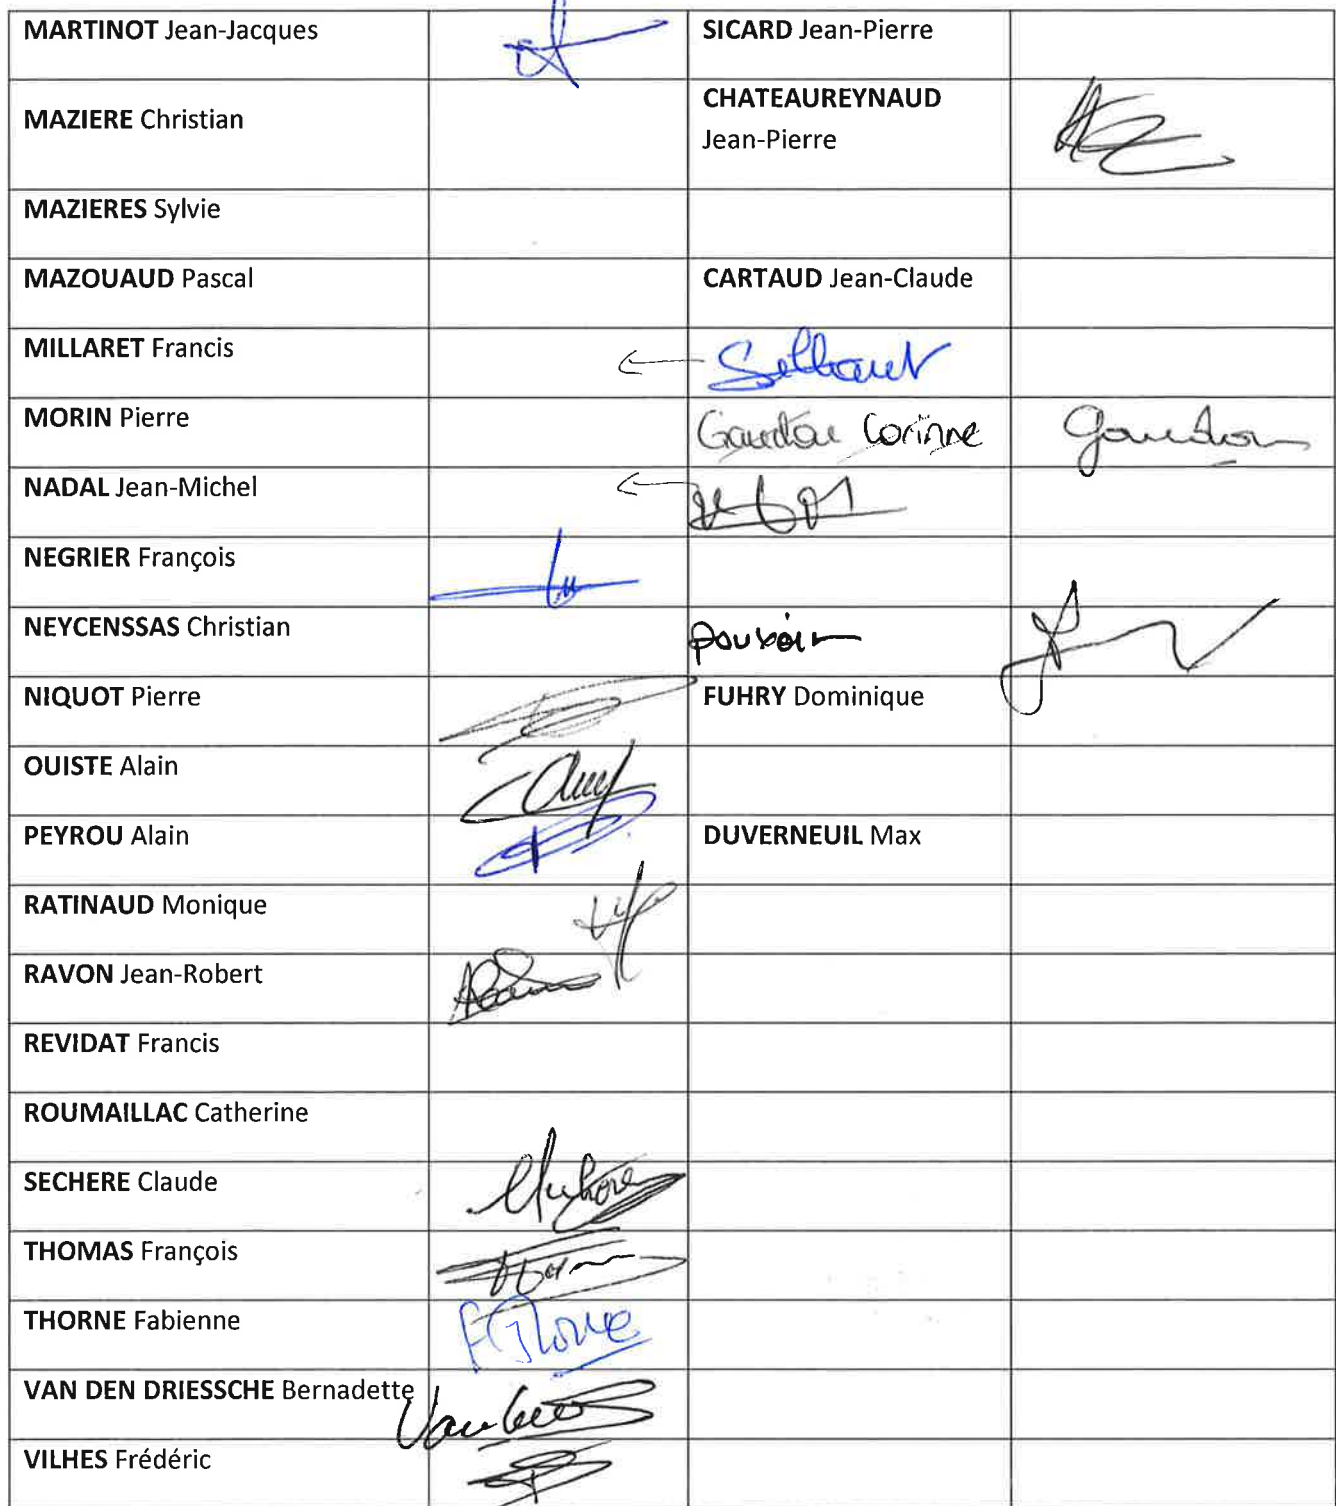 MARTINOT Jean-Jacques
SICARD Jean-Pierre
MAZIERE Christian
CHATEAUREYNAUD
Jean-Pierre
MAZIERES Sylvie
MAZOUAUD Pascal
CARTAUD Jean-Claude
MILLARET Francis
MORIN Pierre
Corinne
NADAL Jean-Michel
NEGRIER François
NEYCENSSAS Christian
pouvoir
NIQUOT Pierre
FUHRY Dominique
OUISTE Alain
PEYROU Alain
DUVERNEUIL Max
RATINAUD Monique
RAVON Jean-Robert
REVIDAT Francis
ROUMAILLAC Catherine
SECHERE Claude
THOMAS François
THORNE Fabienne
VAN DEN DRIESSCHE Bernadette
VILHES Frédéric